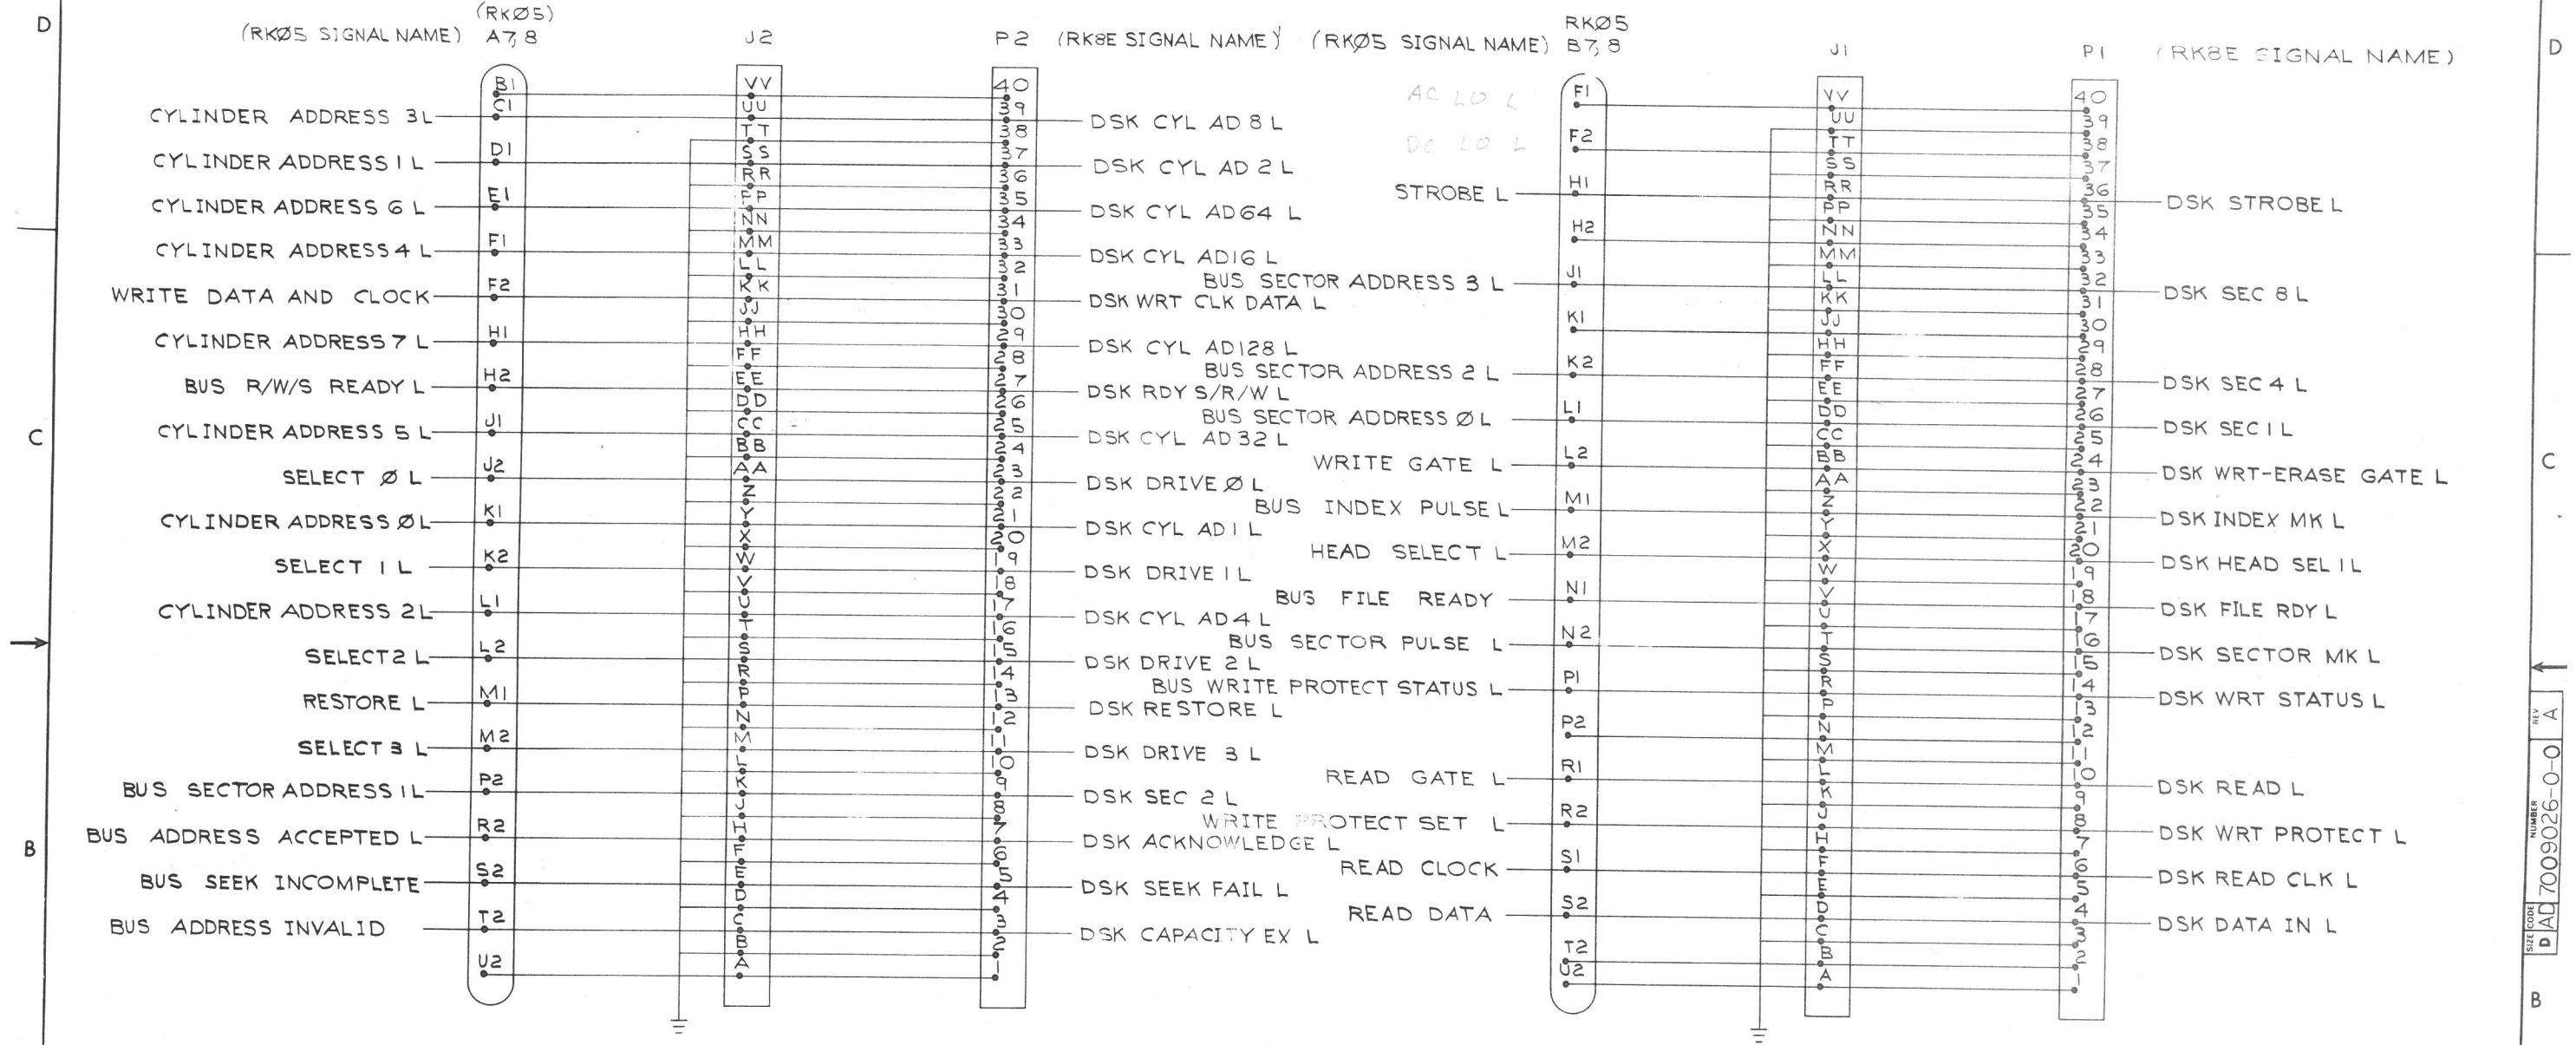 D
(RKØ5 SIGNAL NAME)
(RKØ5)
A7,8
J2
P2
(RK8E SIGNAL NAME)
B1
C1
D1
E1
F1
F2
H1
H2
J1
J2
K1
K2
L1
L2
M1
M2
P2
R2
S2
T2
U2
CYLINDER ADDRESS 3L
CYLINDER ADDRESS 1 L
CYLINDER ADDRESS 6 L
CYLINDER ADDRESS 4 L
WRITE DATA AND CLOCK
CYLINDER ADDRESS 7 L
BUS R/W/S READY L
CYLINDER ADDRESS 5 L
SELECT Ø L
CYLINDER ADDRESS Ø L
SELECT 1 L
CYLINDER ADDRESS 2L
SELECT2 L
RESTORE L
SELECT 3 L
BUS SECTOR ADDRESS 1L
BUS ADDRESS ACCEPTED L
BUS SEEK INCOMPLETE
BUS ADDRESS INVALID
VV
UU
TT
SS
RR
PP
NN
MM
LL
KK
JJ
HH
FF
EE
DD
CC
BB
AA
Z
Y
X
W
V
U
T
S
R
P
N
M
L
K
J
H
F
E
D
C
B
A
40
39
38
37
36
35
34
33
32
31
30
29
28
27
26
25
24
23
22
21
20
19
18
17
16
15
14
13
12
11
10
9
8
7
6
5
4
3
2
1
DSK CYL AD 8 L
DSK CYL AD 2 L
DSK CYL AD64 L
DSK CYL AD16 L
DSK WRT CLK DATA L
DSK CYL AD128 L
DSK RDY S/R/W L
DSK CYL AD 32 L
DSK DRIVE Ø L
DSK CYL AD1 L
DSK DRIVE 1 L
DSK CYL AD4 L
DSK DRIVE 2 L
DSK RESTORE L
DSK DRIVE 3 L
DSK SEC 2 L
DSK ACKNOWLEDGE L
DSK SEEK FAIL L
DSK CAPACITY EX L
(RKØ5 SIGNAL NAME)
RKØ5
B7,8
J1
P1
(RK8E SIGNAL NAME)
AC LO L
DC LO L
STROBE L
BUS SECTOR ADDRESS 3 L
BUS SECTOR ADDRESS 2 L
BUS SECTOR ADDRESS Ø L
WRITE GATE L
BUS INDEX PULSE L
HEAD SELECT L
BUS FILE READY
BUS SECTOR PULSE L
BUS WRITE PROTECT STATUS L
READ GATE L
WRITE PROTECT SET L
READ CLOCK
READ DATA
F1
F2
H1
H2
J1
K1
K2
L1
L2
M1
M2
N1
N2
P1
P2
R1
R2
S1
S2
T2
U2
VV
UU
TT
SS
RR
PP
NN
MM
LL
KK
JJ
HH
FF
EE
DD
CC
BB
AA
Z
Y
X
W
V
U
T
S
R
P
N
M
L
K
J
H
F
E
D
C
B
A
40
39
38
37
36
35
34
33
32
31
30
29
28
27
26
25
24
23
22
21
20
19
18
17
16
15
14
13
12
11
10
9
8
7
6
5
4
3
2
1
DSK STROBE L
DSK SEC 8 L
DSK SEC 4 L
DSK SEC 1 L
DSK WRT-ERASE GATE L
DSK INDEX MK L
DSK HEAD SEL 1L
DSK FILE RDY L
DSK SECTOR MK L
DSK WRT STATUS L
DSK READ L
DSK WRT PROTECT L
DSK READ CLK L
DSK DATA IN L
D
C
C
B
B
SIZE CODE NUMBER REV
D AD 7009026-0-0 A